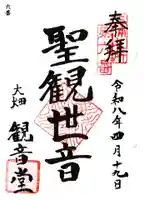 六番
奉拝
令和八年四月十九日
聖観世音
大畑
観音堂